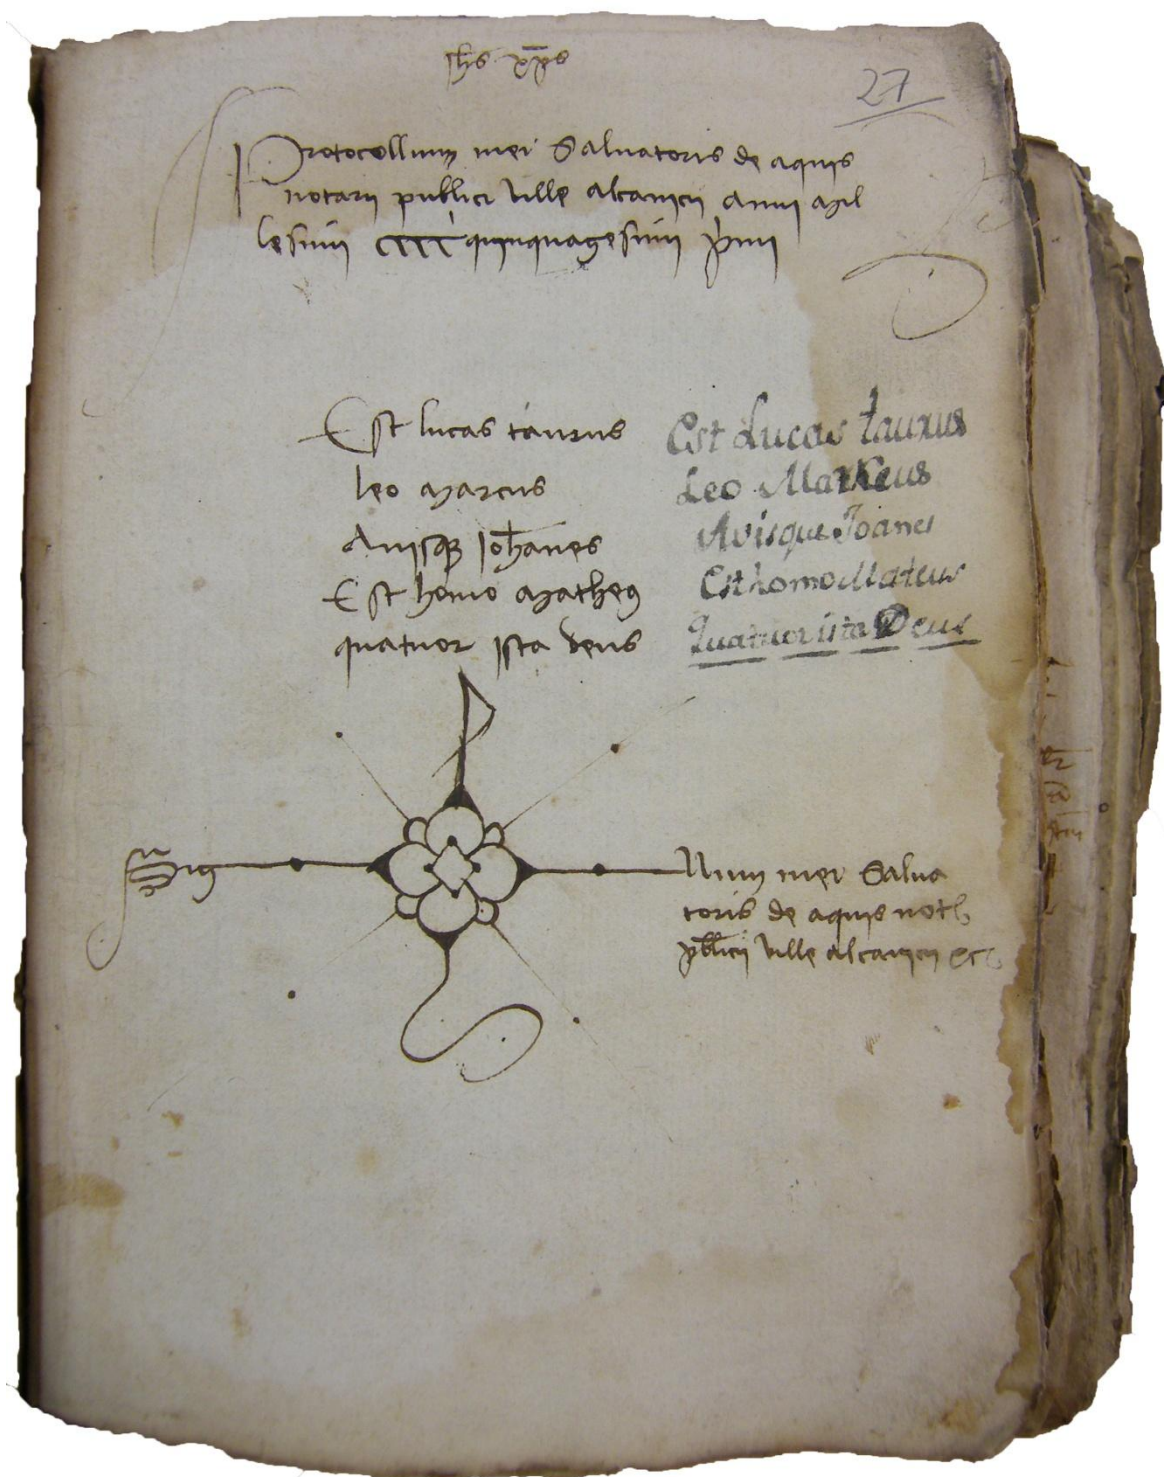 Jhs xps
27
Protocollum mei Salvatoris de aquis
notarii publici ville alcanicii Anni Mil
lesimi CCCC quinquagesimi primi
Est lucas taurus
leo Marcus
Avisque Johanes
Est homo Matheus
quatuor ista deus
Est Lucas taurus
Leo Markeus
Avisque Joanes
Est homo Mateus
Quatuor ista Deus
Sig
Num mei Salva
toris de aquis noth
publici ville alcanicii etc